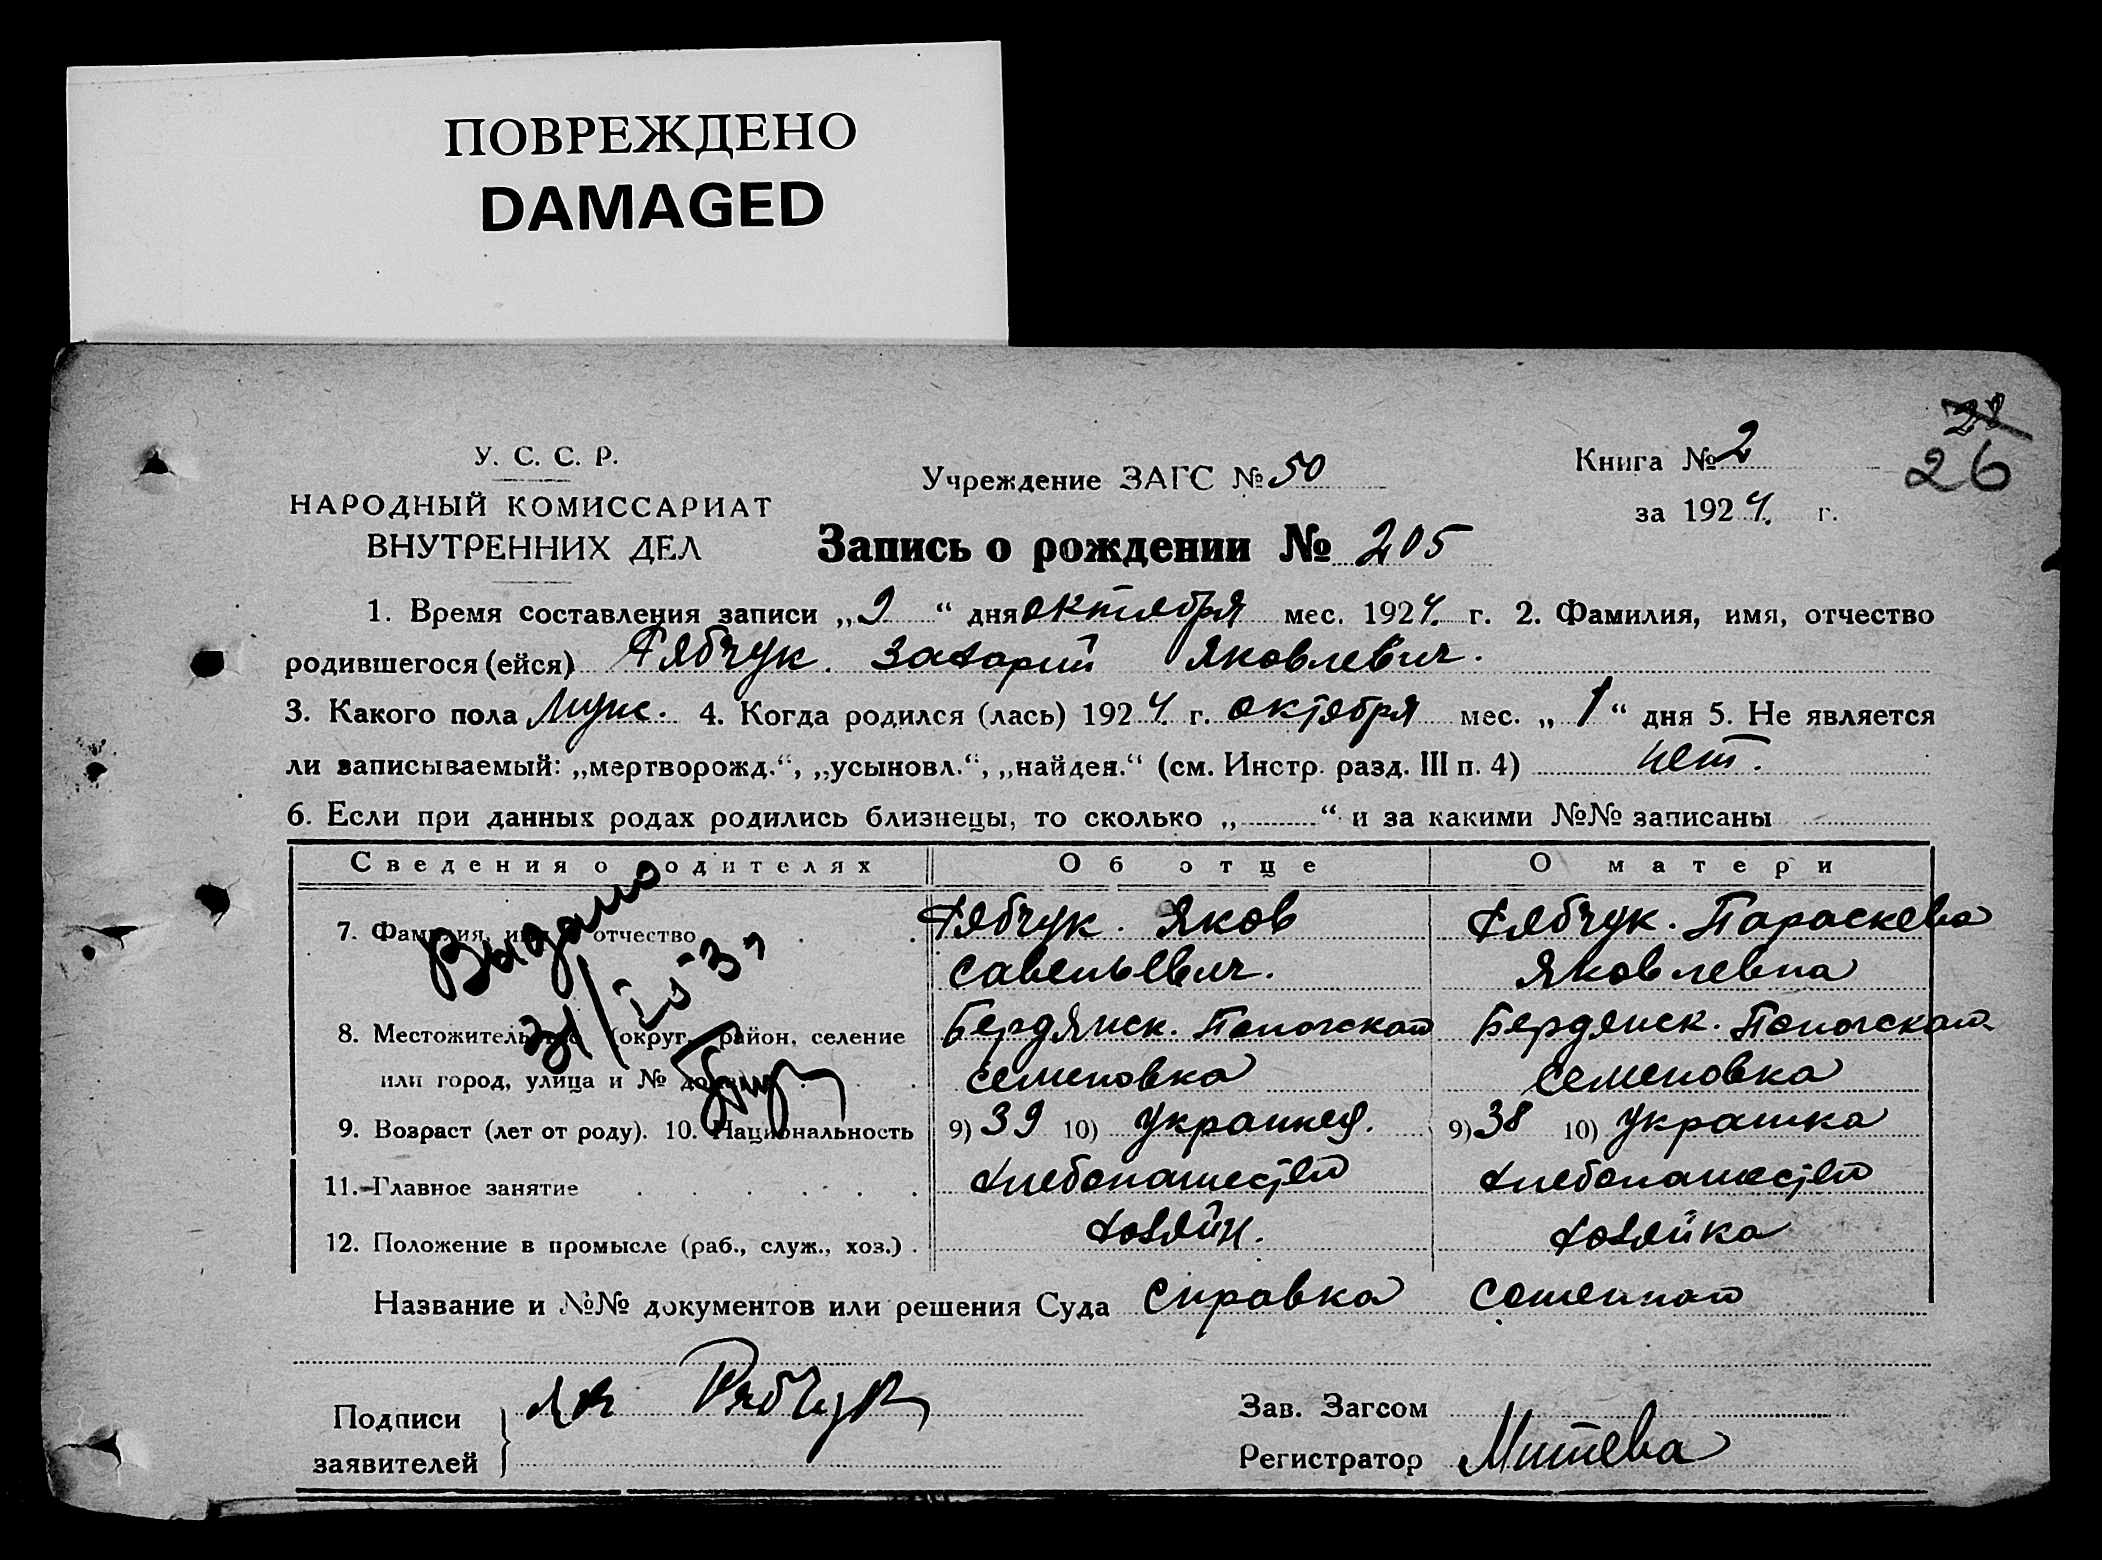 ПОВРЕЖДЕНО
DAMAGED
28
26
У. С. С. Р.
НАРОДНЫЙ КОМИССАРИАТ
ВНУТРЕННИХ ДЕЛ
Учреждение ЗАГС № 50
Книга № 2
за 1924 г.
Запись о рождении № 205
1. Время составления записи „2“ дня октября мес. 1924 г. 2. Фамилия, имя, отчество
родившегося (ейся) Рябчук. Захарий Яковлевич.
3. Какого пола Муж. 4. Когда родился (лась) 1924 г. октября мес. „1“ дня 5. Не является
ли записываемый: „мертворожд.“, „усыновл.“, „найден.“ (см. Инстр. разд. III п. 4) нет.
6. Если при данных родах родились близнецы, то сколько „ “ и за какими №№ записаны
Сведения о родителях Об отце О матери
7. Фамилия, имя, отчество Рябчук. Яков Рябчук. Параскева
Савельевич. Яковлевна
Выдано
8. Местожительство (округ, район, селение Бердянск. Бердянск.
или город, улица и № дома) Семеновка Семеновка
9. Возраст (лет от роду). 10. Национальность 9) 39 10) Украинец. 9) 38 10) Украинка
11. Главное занятие Хлебопашество Хлебопашество
12. Положение в промысле (раб., служ., хоз.) Хозяин. Хозяйка
Название и №№ документов или решения Суда Справка
Подписи Рябчук
заявителей
Зав. Загсом
Регистратор Митева